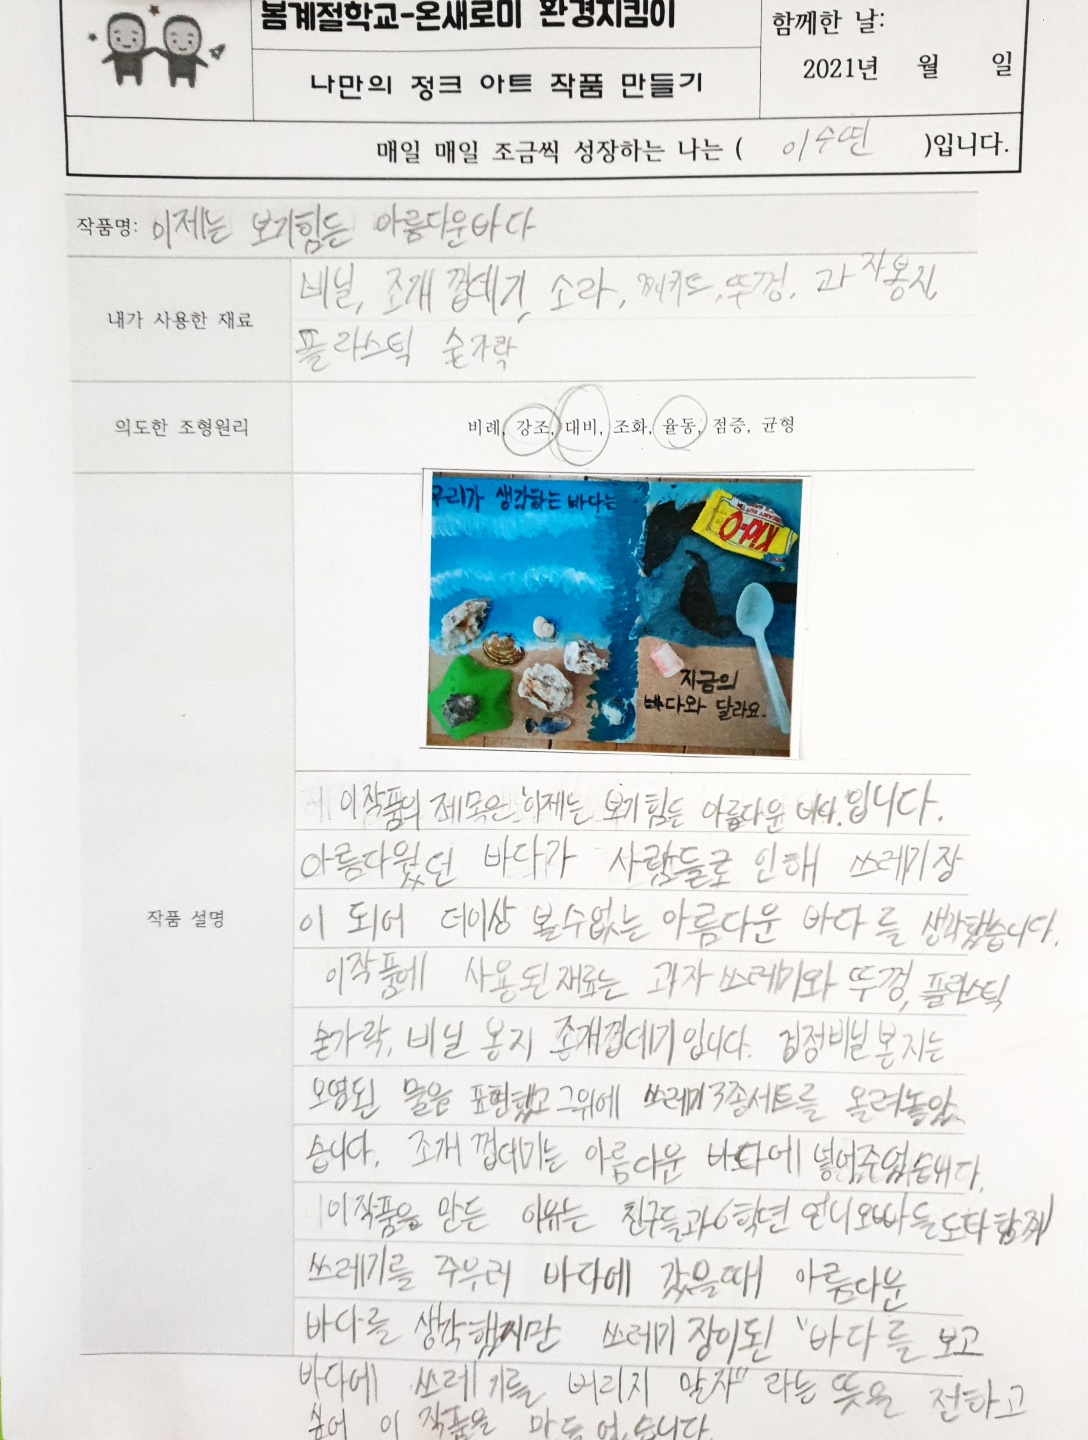 봄계절학교-온새로미 환경지킴이
함께한 날:
2021년 월 일
나만의 정크 아트 작품 만들기
매일 매일 조금씩 성장하는 나는 ( 이수면 )입니다.
작품명: 이제는 보기힘든 아름다운바다
내가 사용한 재료
비닐, 조개 껍데기, 소라, 뚜껑, 과자봉지,
플라스틱 숟가락
의도한 조형원리
비례, 강조, 대비, 조화, 율동, 점증, 균형
우리가 생각하는 바다는
Kid-O
지금의
바다와 달라요.
작품 설명
이작품의 제목은 '이제는 보기힘든 아름다운 바다.입니다.
아름다웠던 바다가 사람들로 인해 쓰레기장
이 되어 더이상 볼수없는 아름다운 바다를 생각했습니다.
이작품에 사용된재료는 과자 쓰레기와 뚜껑, 플라스틱
숟가락, 비닐 봉지 조개껍데기입니다. 검정비닐봉지는
오염된 물을 표현했고 그위에 쓰레기3종세트를 올려놓았
습니다. 조개 껍데기는 아름다운 바다에 넣어주었습니다.
이작품을 만든 이유는 친구들과6학년 언니오빠들도다함께
쓰레기를 주우러 바다에 갔을때 아름다운
바다를 생각했지만 쓰레기 장이된 "바다를 보고
바다에 쓰레기를 버리지 말자" 라는 뜻을 전하고
싶어 이 작품을 만들었습니다.